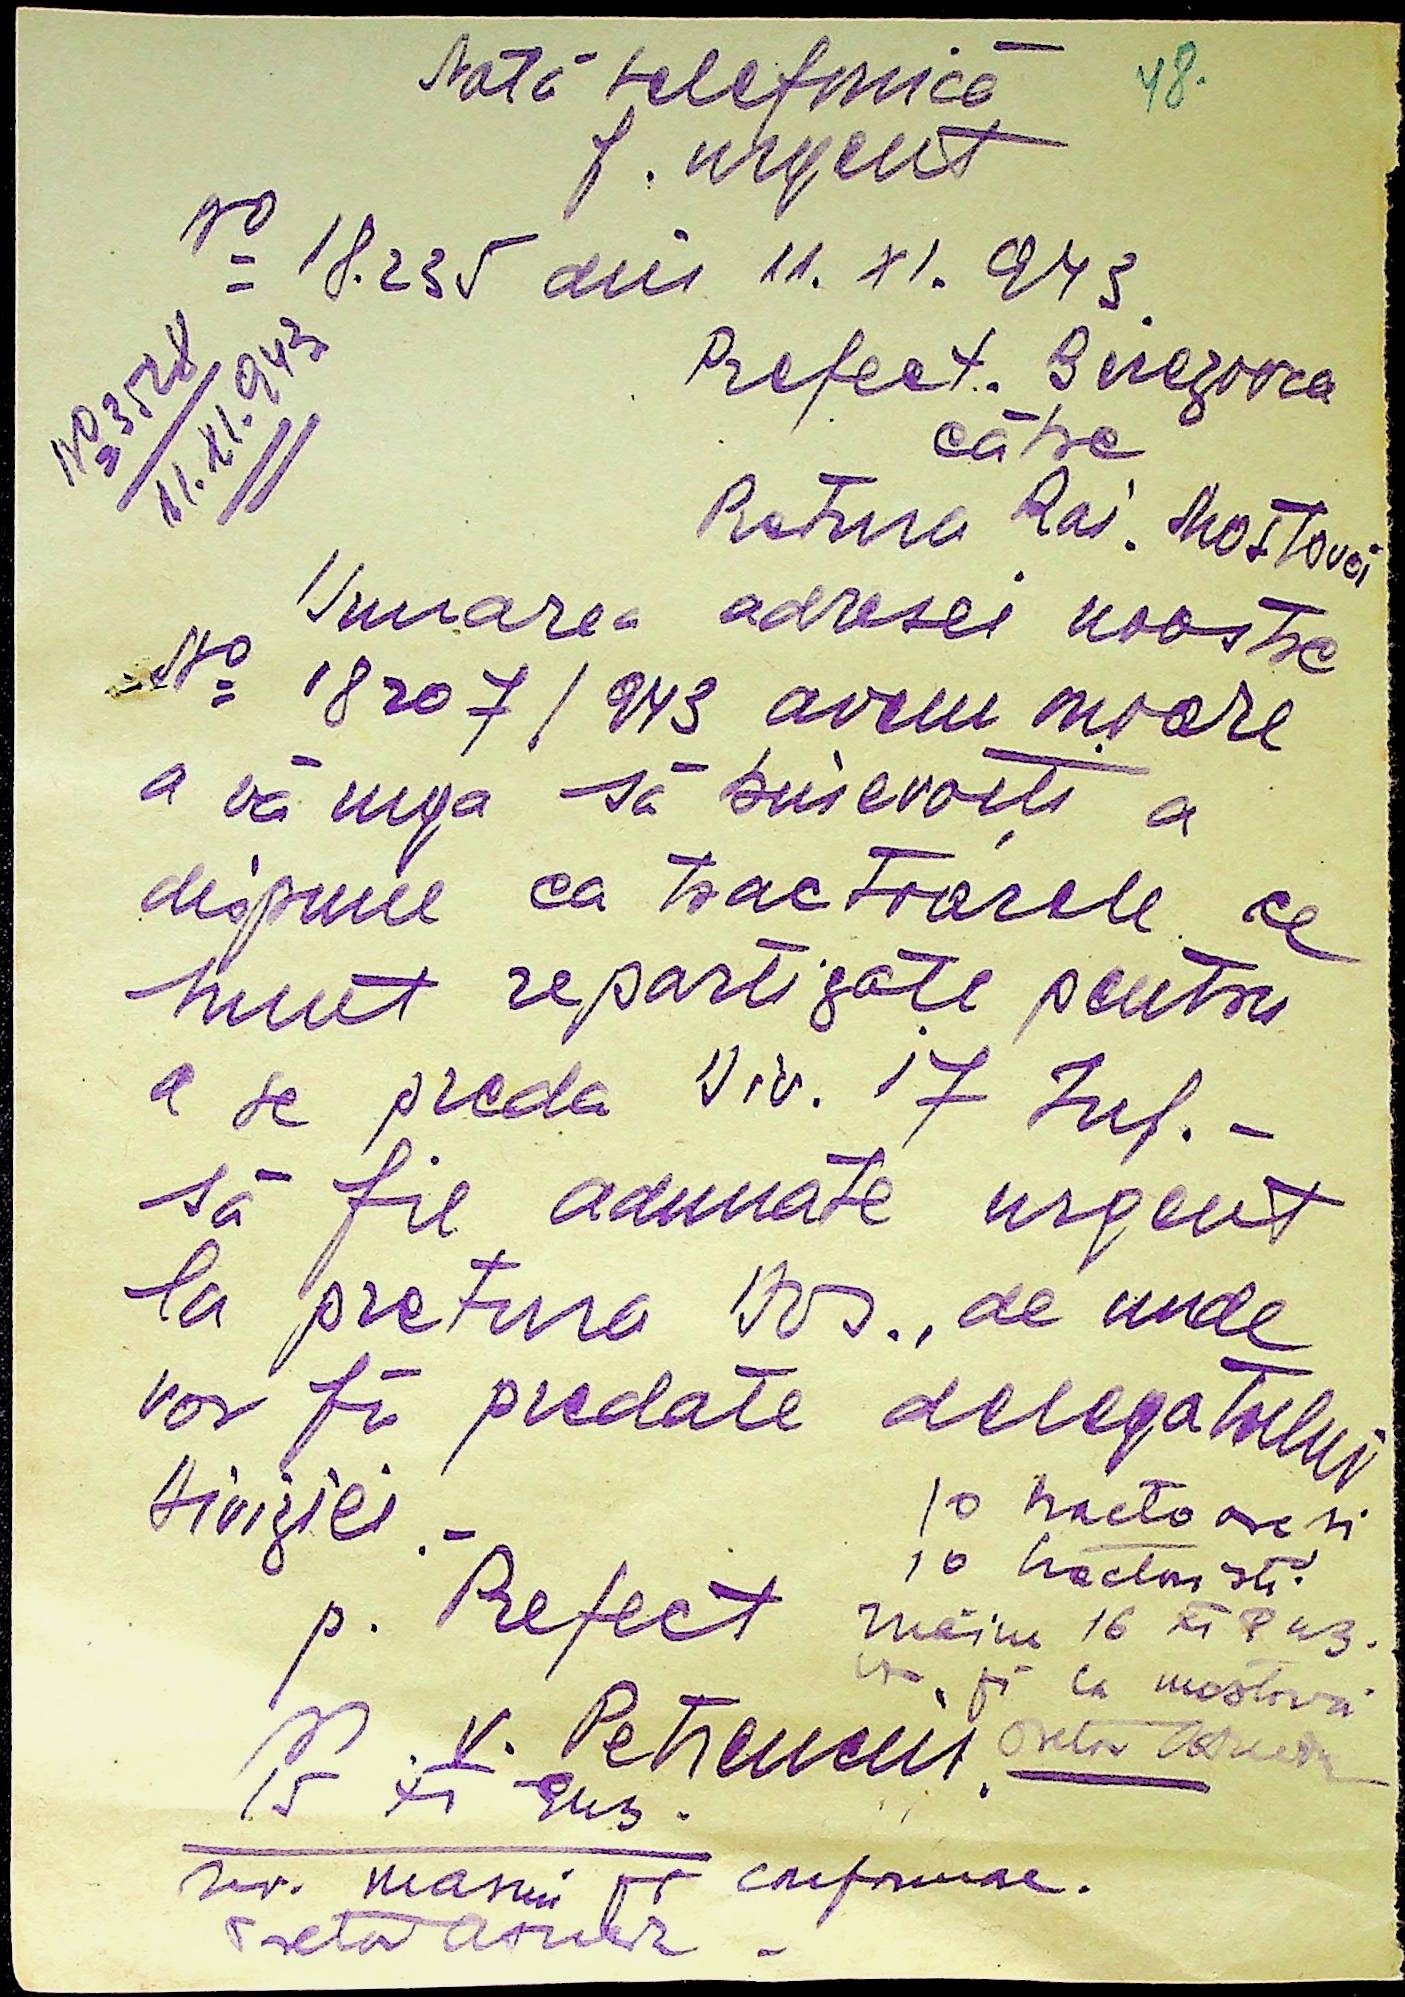 Notă telefonică
48.
f. urgent
No 18.235 din 11.XI.943.
No 3528
11.XI.943
Prefect. Berezovca
către
Pretura Rai. Mostovoi
Urmarea adresei noastre
No 18207/943 avem onoare
a vă ruga să binevoiți a
dispune ca tractoarele ce
sunt repartizate pentru
a se preda Div. 17 Inf. -
să fie adunate urgent
la pretura Dvs., de unde
vor fi predate delegatului
Diviziei. -
10 tractoare și
10 tractoriști
p. Prefect
mâine 16 XI 943.
vor fi la mostovoi
V. Petrenciu.
Pretor
15 XI 943.
conformare.
Pretor